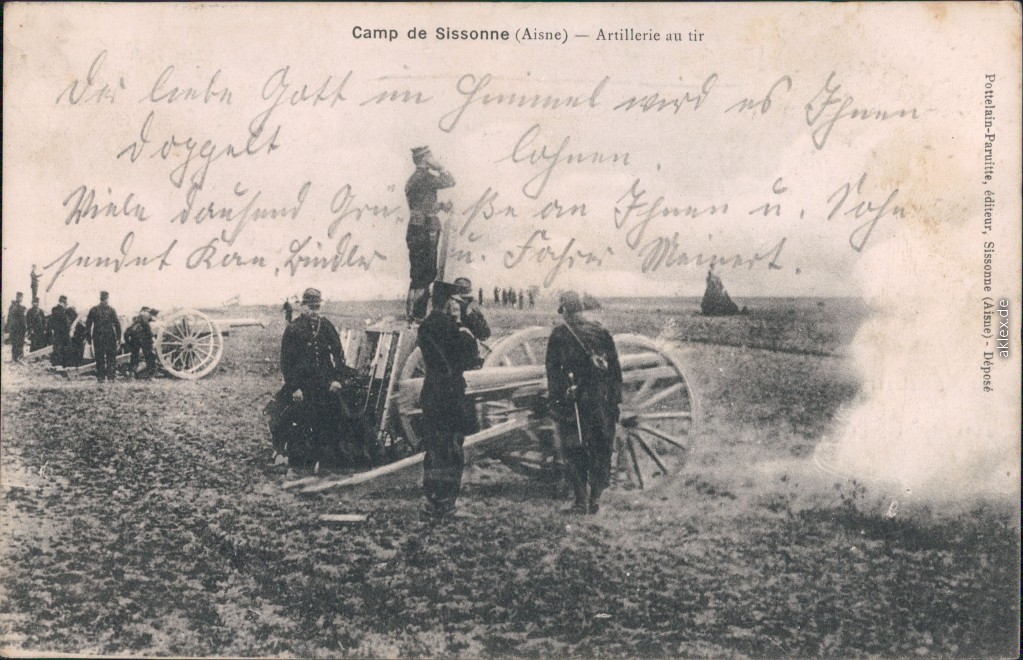 Camp de Sissonne (Aisne) — Artillerie au tir
Der liebe Gott im Himmel wird es Ihnen
doppelt lohnen.
Viele tausend Grüße an Ihnen u. Sohn
sendet Kan. Bindler u. Fahrer Meinert.
Pottelain-Paruitte, éditeur, Sissonne (Aisne) - Déposé
akpool.de